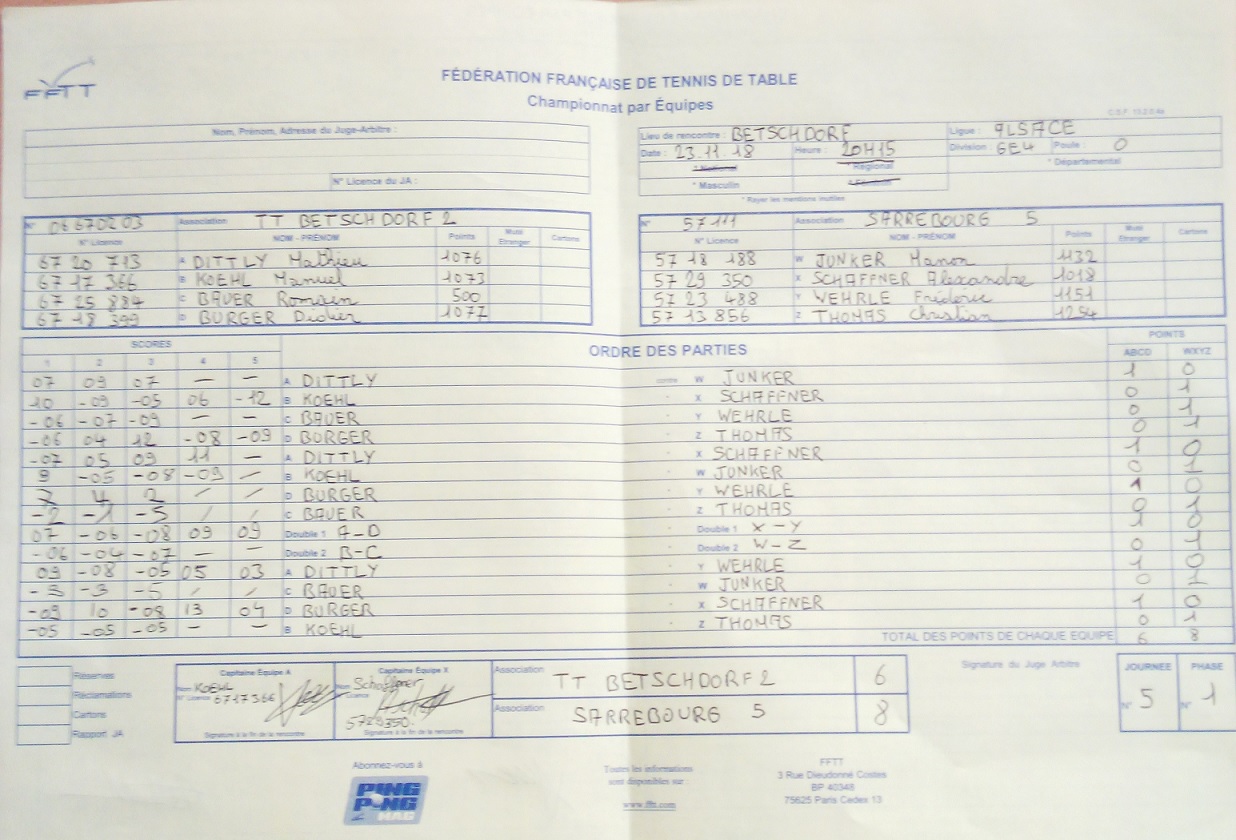 FFTT
FÉDÉRATION FRANÇAISE DE TENNIS DE TABLE
Championnat par Équipes
Nom, Prénom, Adresse du Juge-Arbitre :
N° Licence du JA :
Lieu de rencontre : BETSCHDORF Ligue : ALSACE
Date : 23.11.18 Heure : 20H15 Division : GE4 Poule : 0
* National * Régional * Départemental
* Masculin * Féminin
* Rayer les mentions inutiles
N° 06670203 Association TT BETSCHDORF 2
N° Licence NOM - PRÉNOM Points Muté Etranger Cartons
67 20 713 A DITTLY Mathieu 1076
67 17 366 B KOEHL Manuel 1073
67 25 884 C BAUER Romain 500
67 18 399 D BURGER Didier 1077
N° 57111 Association SARREBOURG 5
N° Licence NOM - PRÉNOM Points Muté Etranger Cartons
57 18 188 W JUNKER Manon 1132
57 29 350 X SCHAFFNER Alexandre 1018
57 23 488 Y WEHRLE Frédéric 1151
57 13 856 Z THOMAS Christian 1254
SCORES ORDRE DES PARTIES POINTS
1 2 3 4 5 ABCD WXYZ
07 09 07 — — A DITTLY contre W JUNKER 1 0
10 -09 -05 06 -12 B KOEHL X SCHAFFNER 0 1
-06 -07 -09 — — C BAUER Y WEHRLE 0 1
-06 04 12 -08 -09 D BURGER Z THOMAS 0 1
-07 05 09 11 — A DITTLY X SCHAFFNER 1 0
9 -05 -08 -09 / B KOEHL W JUNKER 0 1
7 4 2 / / D BURGER Y WEHRLE 1 0
-2 -1 -5 / / C BAUER Z THOMAS 0 1
07 -06 -08 09 09 Double 1 A-D Double 1 X-Y 1 0
-06 -04 -07 — — Double 2 B-C Double 2 W-Z 0 1
09 -08 -05 05 03 A DITTLY Y WEHRLE 1 0
-3 -3 -5 / / C BAUER W JUNKER 0 1
-09 10 -08 13 04 D BURGER X SCHAFFNER 1 0
-05 -05 -05 — — B KOEHL Z THOMAS 0 1
TOTAL DES POINTS DE CHAQUE EQUIPE 6 8
Réserves
Réclamations
Cartons
Rapport JA
Capitaine Équipe A
Nom KOEHL
N° Licence 6717366
Signature à la fin de la rencontre
Capitaine Équipe X
Nom Schaffner
Licence
5729350
Signature à la fin de la rencontre
Association TT BETSCHDORF 2 6
Association SARREBOURG 5 8
Signature du Juge Arbitre
JOURNEE PHASE
N° 5 N° 1
Abonnez-vous à
PING PONG MAG
Toutes les informations
sont disponibles sur :
www.fftt.com
FFTT
3 Rue Dieudonné Costes
BP 40348
75625 Paris Cedex 13